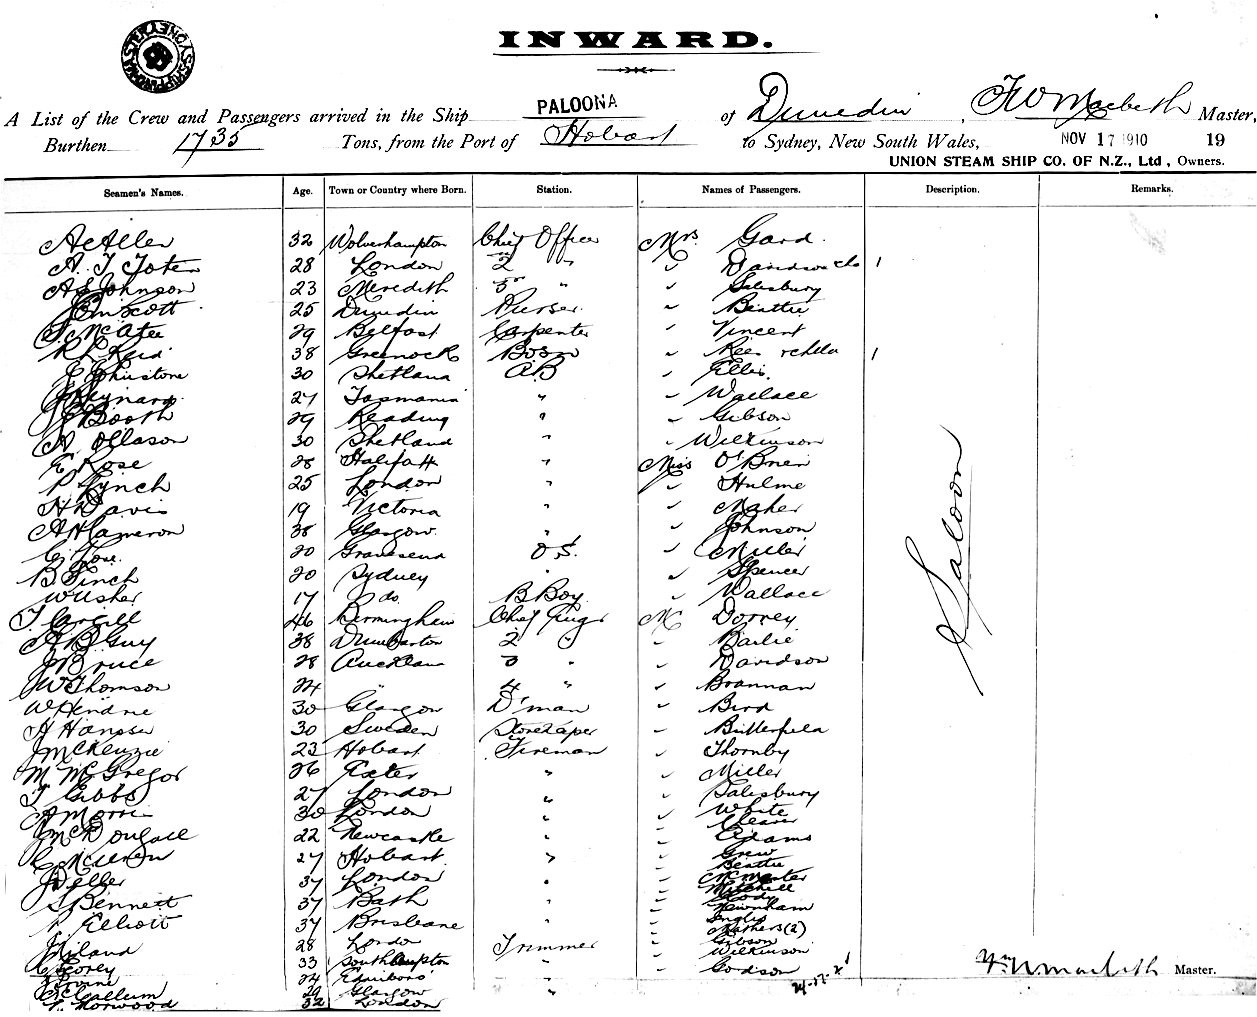 INWARD.
A List of the Crew and Passengers arrived in the Ship PALOONA of Dunedin, Master,
Burthen 1735 Tons, from the Port of Hobart to Sydney, New South Wales, NOV 17 1910 19
UNION STEAM SHIP CO. OF N.Z., Ltd, Owners.
Seamen's Names. Age. Town or Country where Born. Station. Names of Passengers. Description. Remarks.
32 Wolverhampton Chief Officer Mrs Gard
28 London 2 " " Davidson 1
A S Johnson 23 Meredith 3rd " " Salisbury
Scott 25 Dunedin Purser " Beattie
McAtee 29 Belfast Carpenter " Vincent
Reid 38 Greenock Bosn " 1
Johnstone 30 Shetland AB " Ellis
27 Tasmania " " Wallace
Booth 29 Reading " " Gibson
A. Ollason 30 Shetland " " Wilkinson
E Rose 28 Halifax " Miss O'Brien
P Lynch 25 London " " Hulme
H Davis 19 Victoria " " Maher
A H Cameron 38 Glasgow " " Johnson
20 Gravesend O.S. " Miller
B Finch 20 Sydney " " Spencer
W Usher 17 do B Boy " Wallace
T Cargill 46 Birmingham Chief Engr M Dorney
A B Guy 38 Dumbarton 2 " " Bailie
J Bruce 28 Auckland 3 " " Davidson
J W Thomson 24 " 4 " " Brannan
W Hendrie 30 Glasgow D'man " Bird
A Hansen 30 Sweden Storekeeper " Butterfield
J McKenzie 23 Hobart Fireman " Thornby
M McGregor 26 Exeter " " Miller
T Gibbs 27 London " " Salisbury
A Morris 30 London " " White
J McDougall 22 Newcastle " " Adams
27 Hobart " " Grew
" Beattie
J Deller 37 London " " McMaster
" Mitchell
S Bennett 37 Bath "
" Newnham
Elliott 37 Brisbane " " Inglis
" Mathers (2)
28 London Trimmer " Gibson
" Wilkinson
33 Southampton " " Godson
24 Edinboro' "
McCallum 29 Glasgow "
Norwood 32 London
Saloon
Master.